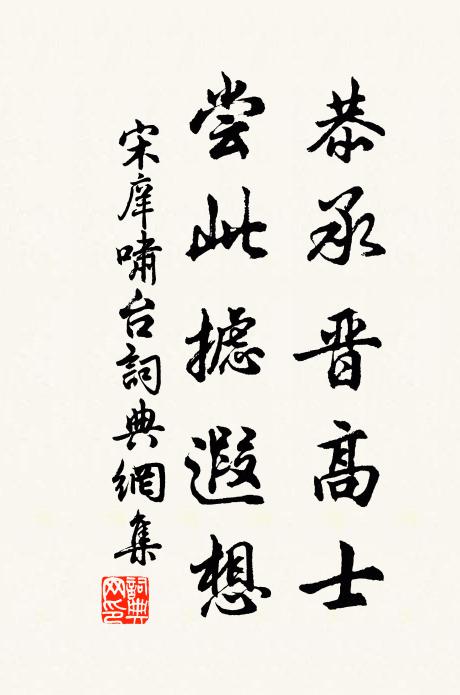 恭承晋高士
尝此摅遐想
宋庠啸台詞典網集
詞典网印